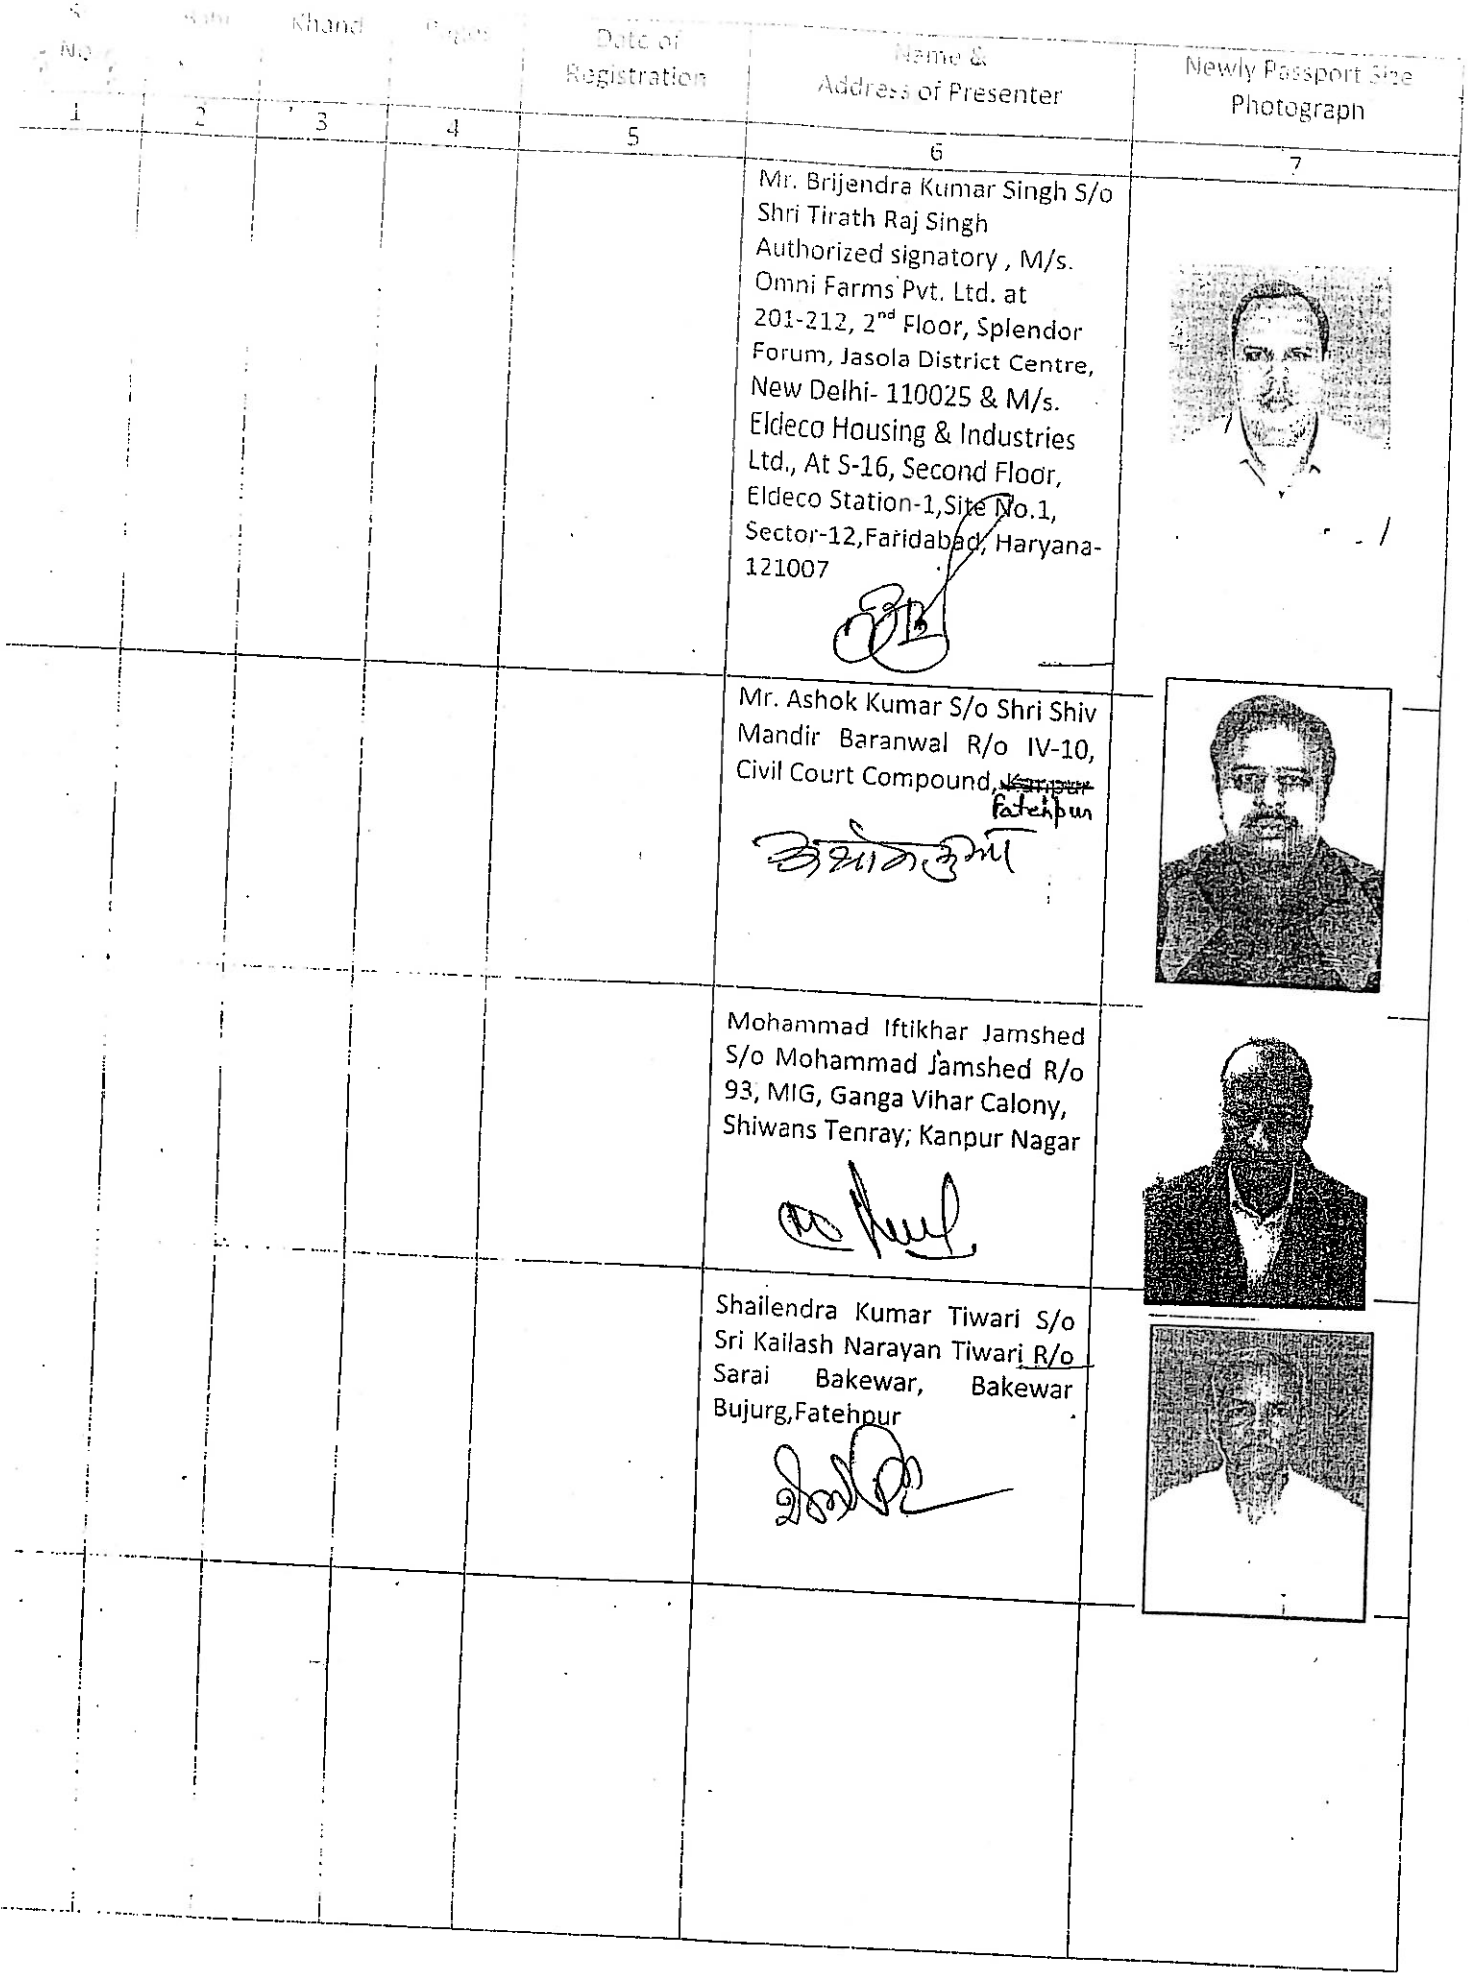 S.
No.
Bahi
Khand
Pages
Date of
Registration
Name &
Address of Presenter
Newly Passport Size
Photograph
1
2
3
4
5
6
7
Mr. Brijendra Kumar Singh S/o
Shri Tirath Raj Singh
Authorized signatory , M/s.
Omni Farms Pvt. Ltd. at
201-212, 2nd Floor, Splendor
Forum, Jasola District Centre,
New Delhi- 110025 & M/s.
Eldeco Housing & Industries
Ltd., At S-16, Second Floor,
Eldeco Station-1,Site No.1,
Sector-12,Faridabad, Haryana-
121007
Mr. Ashok Kumar S/o Shri Shiv
Mandir Baranwal R/o IV-10,
Civil Court Compound, Kanpur
Fatehpur
अशोक कुमार
Mohammad Iftikhar Jamshed
S/o Mohammad Jamshed R/o
93, MIG, Ganga Vihar Calony,
Shiwans Tenray; Kanpur Nagar
Shailendra Kumar Tiwari S/o
Sri Kailash Narayan Tiwari R/o
Sarai Bakewar, Bakewar
Bujurg,Fatehpur